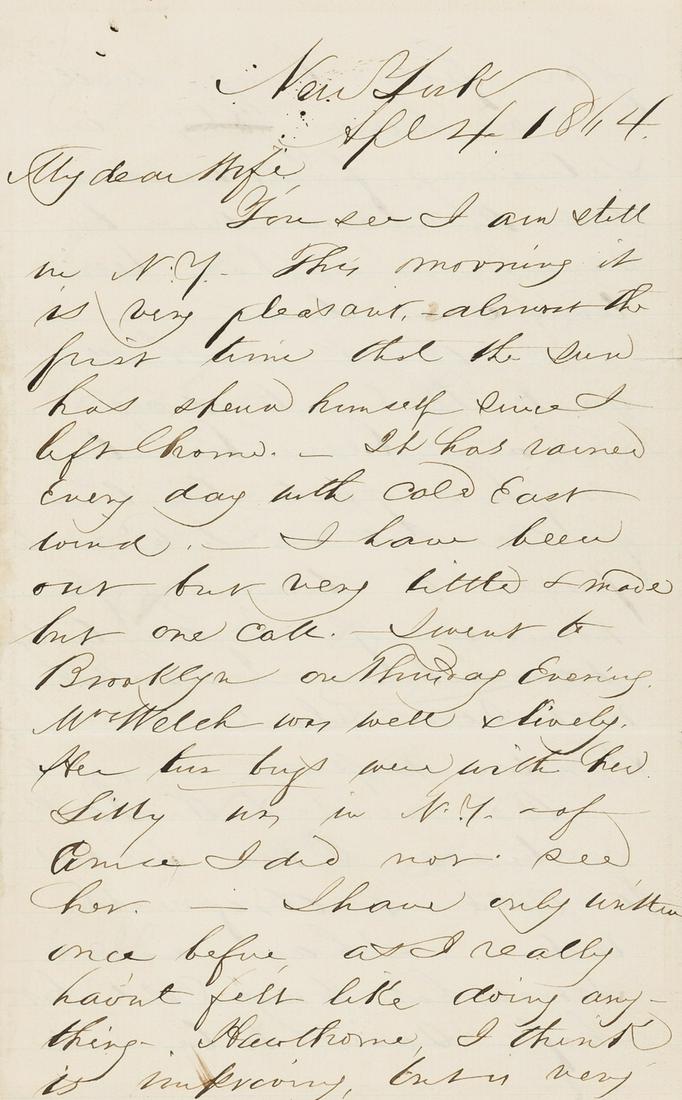 New York
Apl 4. 1864.
My dear Wife,
You see I am still
in N.Y. - This morning it
is very pleasant, - almost the
first time that the sun
has shewn himself since I
left home. - It has rained
every day with cold East
wind. - I have been
out but very little & made
but one call. - I went to
Brooklyn on Thursday Evening.
Mrs Welch was well & lively.
Her two boys were with her.
Lilly was in N.Y. - of
course I did not see
her. - I have only written
once before, as I really
hav'nt felt like doing any-
thing - Hawthorne, I think
is improving, but is very